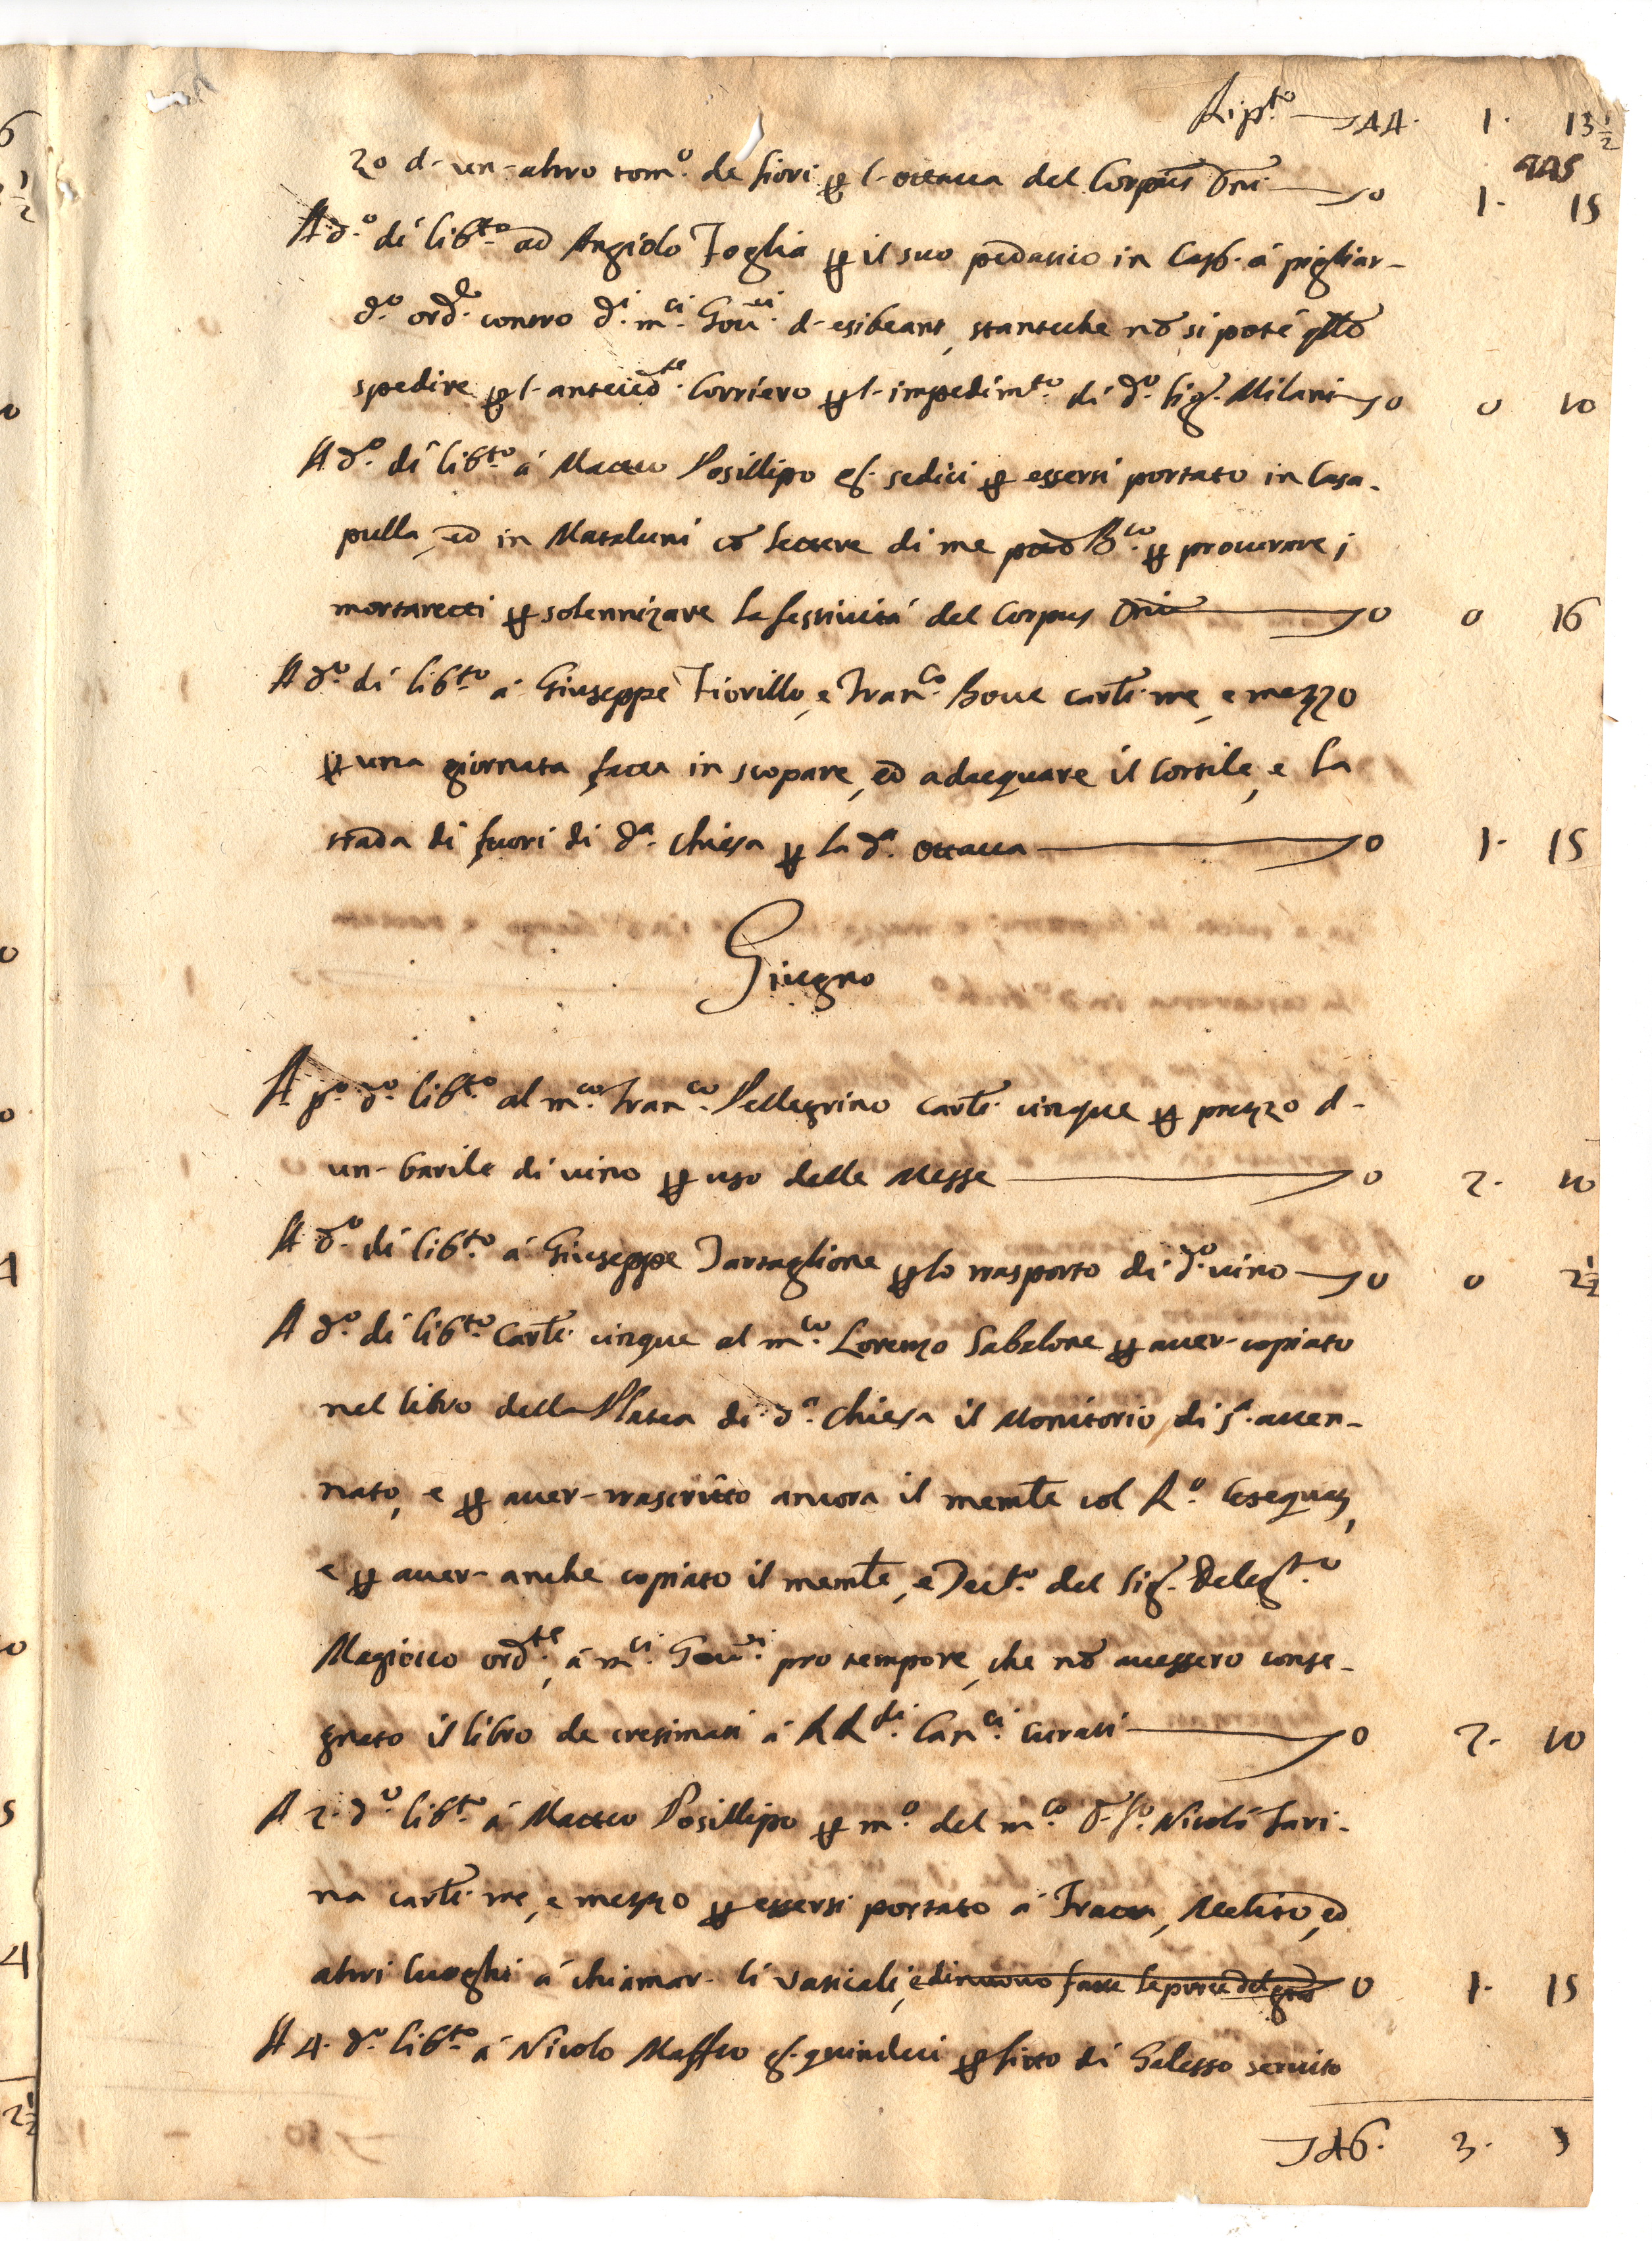 Rip.to 44. 1. 13 1/2
zo d-un-altro tom.o de fiori p l-ottava del Corpus Dni 0 1. 15
A d.o dí lib.to ad Angiolo Foglia p il suo pedatico in Cap. á pigliar-
d.o ord.e contro d.i m.ci Gov.ri d-exibeant, stanteche nõ si poté
spedire p l-anteced.te Corriero p l-impedim.to di d.o Sig. Milani 0 0 10
A d.o dí lib.to á Matteo Posillipo g. sedici p essersi portato in Casa-
pulla, ed in Mataluni cõ lettere di me B.co p procurare i
mortaretti p solennizare la festività del Corpus Dni 0 0 16
A d.o dí lib.to á Giuseppe Fiorillo, e Fran.co Bove carl.i tre, e mezzo
p una giornata fatta in scopare, ed adacquare il Cortile, e la
strada di fuori di d.a Chiesa p la d.a ottava 0 1. 15
Giugno
A p.o d.o lib.to al m.co Fran.co Pellegrino carl.i cinque p prezzo d-
un-barile di vino p uso delle Messe 0 2. 10
A d.o dí lib.to á Giuseppe Tartaglione p lo trasporto di d.o vino 0 0 2 1/2
A d.o dí lib.to Carl.i cinque al m.co Lorenzo Sabelone p aver-copiato
nel libro della Platea di d.a Chiesa il Monitorio di
nato, e p aver-trascritto ancora il memle col R.o Exequatur,
e p aver-anche copiato il memle, e Dec.to del Sig. Deleg.to
Magiocco ord.te, á m.ci Gov.ri pro tempore, che nõ avessero conse-
gnato il libro de cresimati á RR.di Can.ci Curati 0 2. 10
A 2. d.o lib.to á Matteo Posillipo p m.o del m.co Nicolò Fari-
na carl.i tre, e mezzo p essersi portato á Fratta, Melito, ed
altri luoghi á chiamar- li Vaticali, e di nuovo fatte le porte del 0 1. 15
A 4. d.o lib.to á Nicolò Maffeo g. quindeci p fitto di Galesso servito
46. 3. 5